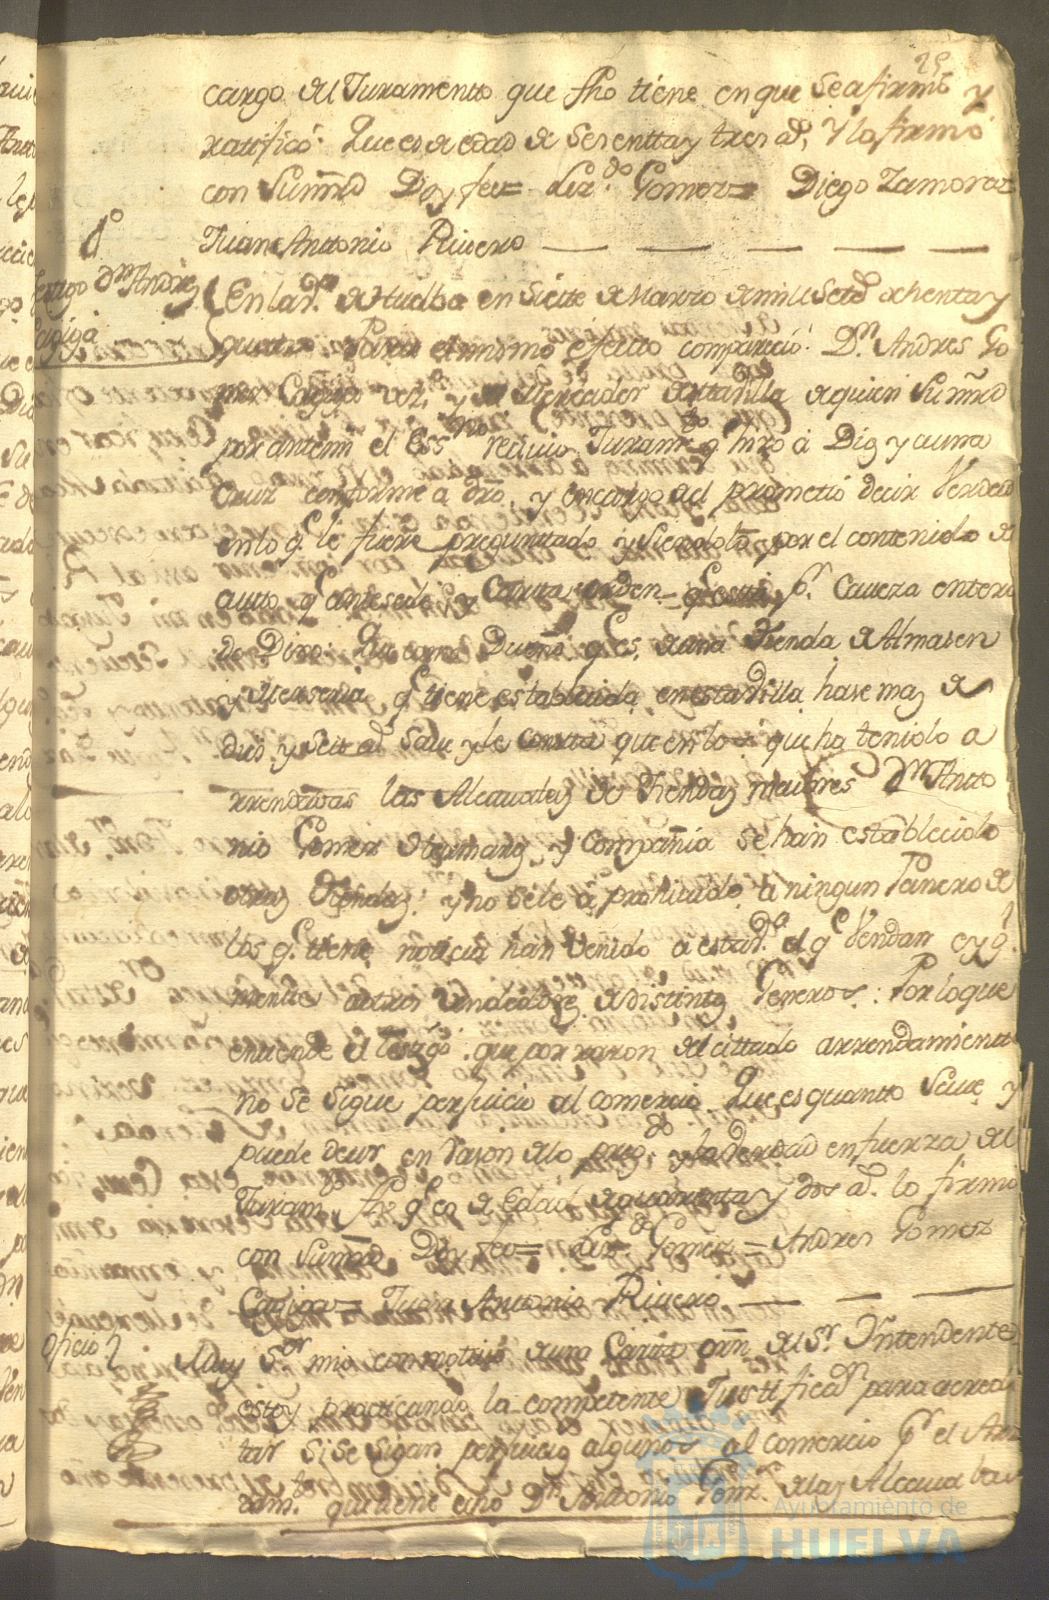 25
cargo del Juramentto que fho tiene en que se afirmó y
ratificó: Que es de edad de sesentta y tres as, Y lo firmó
con Sumrd Doy fee= Lizdo Gomez= Diego Zamora=
Juan Antonio Rivero
1º
testigo Dn Andres
Cagiga
En la va de Huelba en Siette de Marzo de mil Setes ochenta y
quatro para el mismo efecto comparecio: Dn Andres Go
mez Cagiga vezo y Mercader de esta villa de quien Sumrd
por ante mi el Essno recivio Juramto q hizo a Dios y a una
Cruz conforme a dro, y en cargo del prometió decir Verdad
en lo q. le fuere preguntado y siendolo por el contenido del
auto q antesede, y Cartta orden q esta pr Caveza entera
do Dixo: Que como Dueño q es, de una tienda de Almasen
y Merseria q tiene establecida en esta villa hase mas de
dies y seis as save y le consta que en lo que ha tenido a
rrendadas las Alcavalas de Tiendas maiores Dn Anto
nio Gomez y Compañia se han establecido
otras tiendas: y no se le a prohivido a ningun Panero de
los q. tiene noticia han venido a esta va el q Vendan
mente otros de distintos Generos: Por lo que
entiende el testigo que por razon del cittado arrendamiento
no se sigue perjuicio al comercio Que es quantto Save, y
puede decir en razon de lo pregdo y la verdad en fuerza del
Juramto fho q es de Edad de quarenta y dos as. lo firmó
con Sumrd Doy fee= Lizdo Gomez= Andres Gomez
Cagiga= Juan Antonio Rivero
Oficio
Muy Sor mio con motivo de una Cartta orn del Sr Yntendente
estoy practicando la competente Justificaon para acredi
tar si se sigan perjuicios algunos al comercio pr el Arr
damto que tiene eho Dn Antonio Gomz de las Alcavalas
Ayuntamiento de
HUELVA